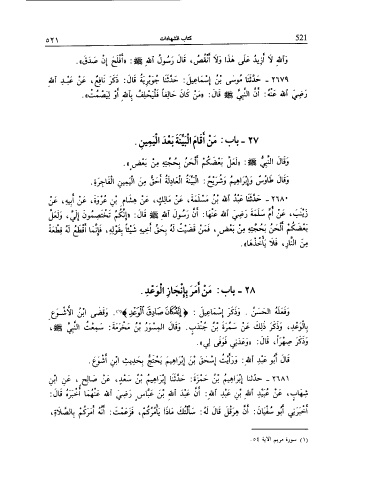 521 كتاب الشهادات ٥٢١
وَاللهِ لَا أَزِيدُ عَلَى هَذَا وَلَا أَنْقُصُ، قَالَ رَسُولُ اللهِ ﷺ: «أَفْلَحَ إِنْ صَدَقَ».
٢٦٧٩ - حَدَّثَنَا مُوسَى بْنُ إِسْمَاعِيلَ: حَدَّثَنَا جُوَيْرِيَةُ قَالَ: ذَكَرَ نَافِعٌ، عَنْ عَبْدِ اللهِ
رَضِيَ اللهُ عَنْهُ: أَنَّ النَّبِيَّ ﷺ قَالَ: «مَنْ كَانَ حَالِفاً فَلْيَحْلِفْ بِاللهِ أَوْ لِيَصْمُتْ».
٢٧ - باب: مَنْ أَقَامَ الْبَيِّنَةَ بَعْدَ الْيَمِينِ.
وَقَالَ النَّبِيُّ ﷺ: «لَعَلَّ بَعْضَكُمْ أَلْحَنُ بِحُجَّتِهِ مِنْ بَعْضٍ».
وَقَالَ طَاوُسٌ وَإِبْرَاهِيمُ وَشُرَيْحٌ: الْبَيِّنَةُ الْعَادِلَةُ أَحَقُّ مِنَ الْيَمِينِ الْفَاجِرَةِ.
٢٦٨٠ - حَدَّثَنَا عَبْدُ اللهِ بْنُ مَسْلَمَةَ، عَنْ مَالِكٍ، عَنْ هِشَامِ بْنِ عُرْوَةَ، عَنْ أَبِيهِ، عَنْ
زَيْنَبَ، عَنْ أُمِّ سَلَمَةَ رَضِيَ اللهُ عَنْهَا: أَنَّ رَسُولَ اللهِ ﷺ قَالَ: «إِنَّكُمْ تَخْتَصِمُونَ إِلَيَّ، وَلَعَلَّ
بَعْضَكُمْ أَلْحَنُ بِحُجَّتِهِ مِنْ بَعْضٍ، فَمَنْ قَضَيْتُ لَهُ بِحَقِّ أَخِيهِ شَيْئاً بِقَوْلِهِ، فَإِنَّمَا أَقْطَعُ لَهُ قِطْعَةً
مِنَ النَّارِ، فَلَا يَأْخُذْهَا».
٢٨ - باب: مَنْ أَمَرَ بِإِنْجَازِ الْوَعْدِ.
وَفَعَلَهُ الْحَسَنُ. وَذَكَرَ إِسْمَاعِيلَ: ﴿إِنَّهُ كَانَ صَادِقَ الْوَعْدِ﴾(١). وَقَضَى ابْنُ الأَشْوَعِ
بِالْوَعْدِ، وَذَكَرَ ذَلِكَ عَنْ سَمُرَةَ بْنِ جُنْدَبٍ. وَقَالَ الْمِسْوَرُ بْنُ مَخْرَمَةَ: سَمِعْتُ النَّبِيَّ ﷺ،
وَذَكَرَ صِهْراً لَهُ، قَالَ: «وَعَدَنِي فَوَفَى لِي».
قَالَ أَبُو عَبْدِ اللهِ: وَرَأَيْتُ إِسْحَقَ بْنَ إِبْرَاهِيمَ يَحْتَجُّ بِحَدِيثِ ابْنِ أَشْوَعَ.
٢٦٨١ - حدثنا إِبْرَاهِيمُ بْنُ حَمْزَةَ: حَدَّثَنَا إِبْرَاهِيمُ بْنُ سَعْدٍ، عَنْ صَالِحٍ، عَنِ ابْنِ
شِهَابٍ، عَنْ عُبَيْدِ اللهِ بْنِ عَبْدِ اللهِ: أَنَّ عَبْدَ اللهِ بْنَ عَبَّاسٍ رَضِيَ اللهُ عَنْهُمَا أَخْبَرَهُ قَالَ:
أَخْبَرَنِي أَبُو سُفْيَانَ: أَنَّ هِرَقْلَ قَالَ لَهُ: سَأَلْتُكَ مَاذَا يَأْمُرُكُمْ، فَزَعَمْتَ: أَنَّهُ أَمَرَكُمْ بِالصَّلَاةِ،
(١) سورة مريم الآية ٥٤